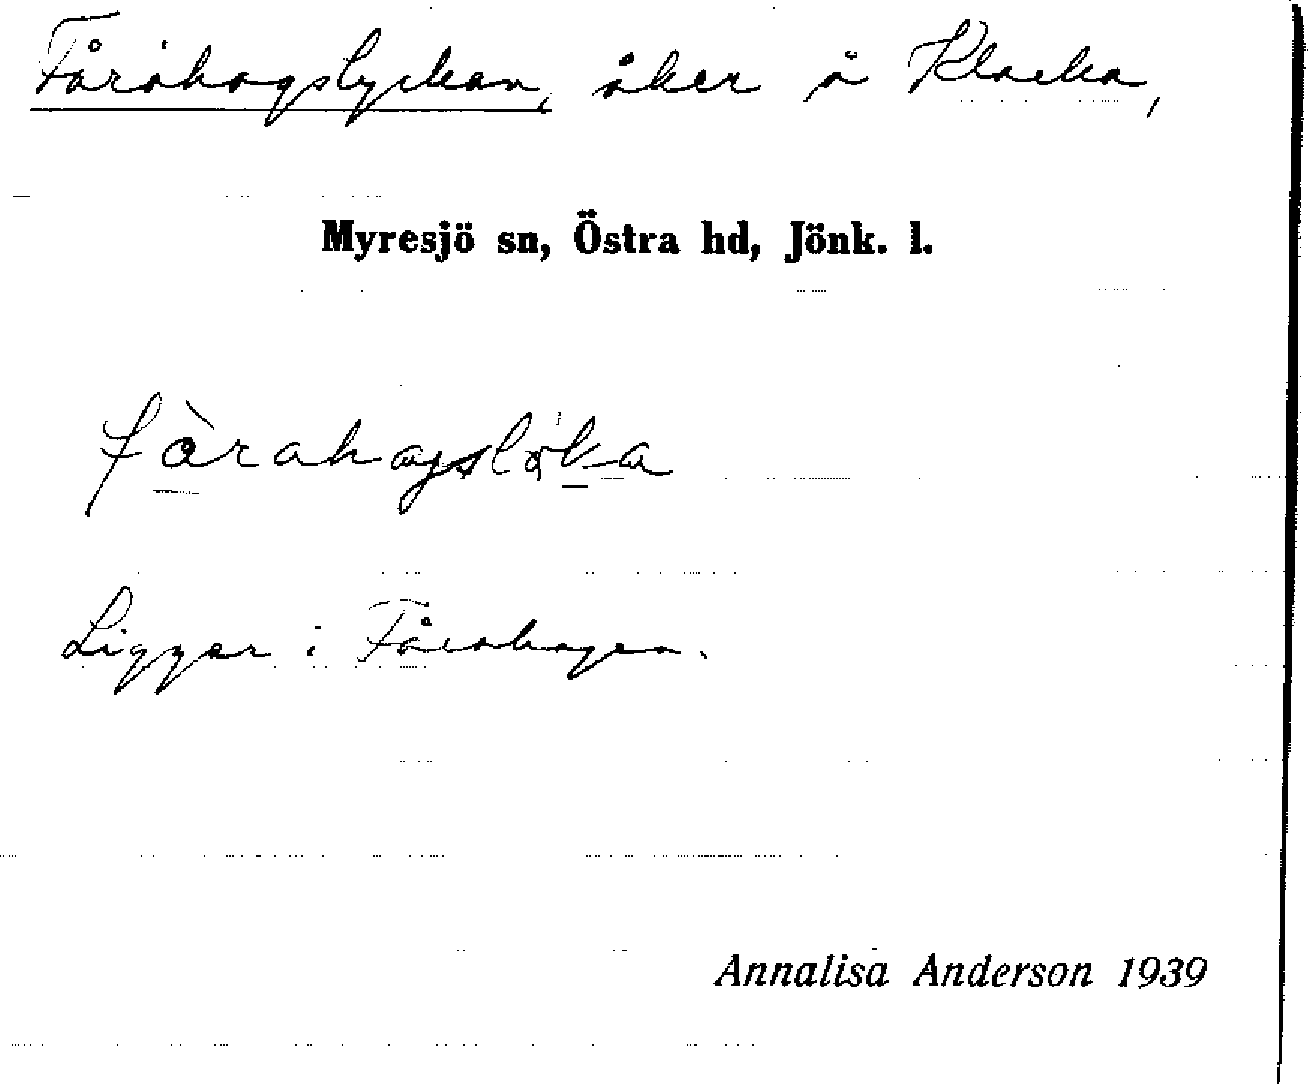 Fårahagslyckan, åker å Klacka,
Myresjö sn, Östra hd, Jönk. l.
fàrahagslöka
Ligger i Fårahagen.
Annalisa Anderson 1939